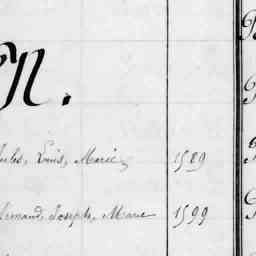 N.
Jules, Louis, Marie 1589
Armand Joseph, Marie 1599